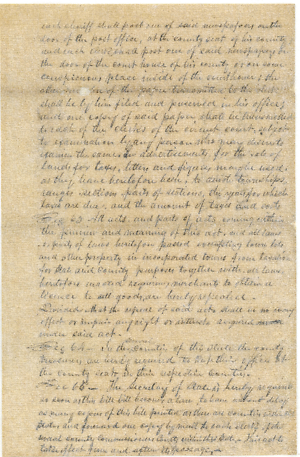 each sheriff shall post one of said newspapers on the
door of the post office, at the county seat of his county
and each shall post one of said newspapers by
the door of the court house of his county or on some
conspicuous place inside of the court house & the
other copy of the paper transmitted to the sheriff
shall be by him filed and preserved in his office,
and one copy of said paper shall be transmitted
to each of the clerks of the circuit court, subject
to examination by any person who may desire to
examine the same
lands for taxes, letters and figures may be used
as they have heretofore been to denote townships,
ranges, sections, parts of sections, the year for which
taxes are due, and the amount of taxes and costs
Sec 63 All acts, and parts of acts coming within
the purview and meaning of this act, and all laws
or parts of laws heretofore passed exempting town lots
and other property in incorporated towns from taxation
for State and County purposes together with all laws
heretofore enacted requiring merchants to obtain a
license to sell goods, are hereby repealed.
Provided that the repeal of said acts shall in no way
effect or impair any right or interests acquired
under said acts.
Sec 64. In the counties of this state the county
treasurers are hereby required to keep their offices at
the county seats in their respective counties.
Sec 65. The Secretary of State is hereby required
as soon as this bill shall become a law to have
as many copies of this bill printed as there are counties in the
state and forward one copy by mail to each clerk of the
county commissioners courts within this State. This act to
take effect from and after its passage.